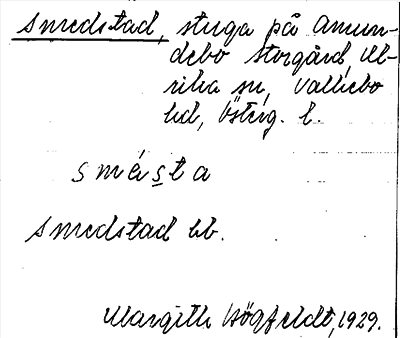 Smedstad, stuga på Amun-
debo storgård, Ul-
rika sn, Vallebo
hd, Österg. l.
smésta
Smedstad bb.
Margith Högfeldt, 1929.